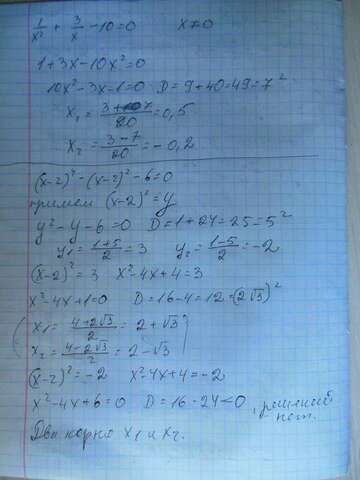 1/x² + 3/x - 10 = 0 x ≠ 0
1 + 3x - 10x² = 0
10x² - 3x - 1 = 0 D = 9 + 40 = 49 = 7²
x₁ = (3 + 7)/20 = 0,5
x₂ = (3 - 7)/20 = -0,2
(x-2)⁴ - (x-2)² - 6 = 0
примем (x-2)² = y
y² - y - 6 = 0 D = 1 + 24 = 25 = 5²
y₁ = (1+5)/2 = 3 y₂ = (1-5)/2 = -2
(x-2)² = 3 x² - 4x + 4 = 3
x² - 4x + 1 = 0 D = 16 - 4 = 12 = (2√3)²
x₁ = (4 + 2√3)/2 = 2 + √3
x₂ = (4 - 2√3)/2 = 2 - √3
(x-2)² = -2 x² - 4x + 4 = -2
x² - 4x + 6 = 0 D = 16 - 24 < 0, решений
нет.
Два корня x₁ и x₂.